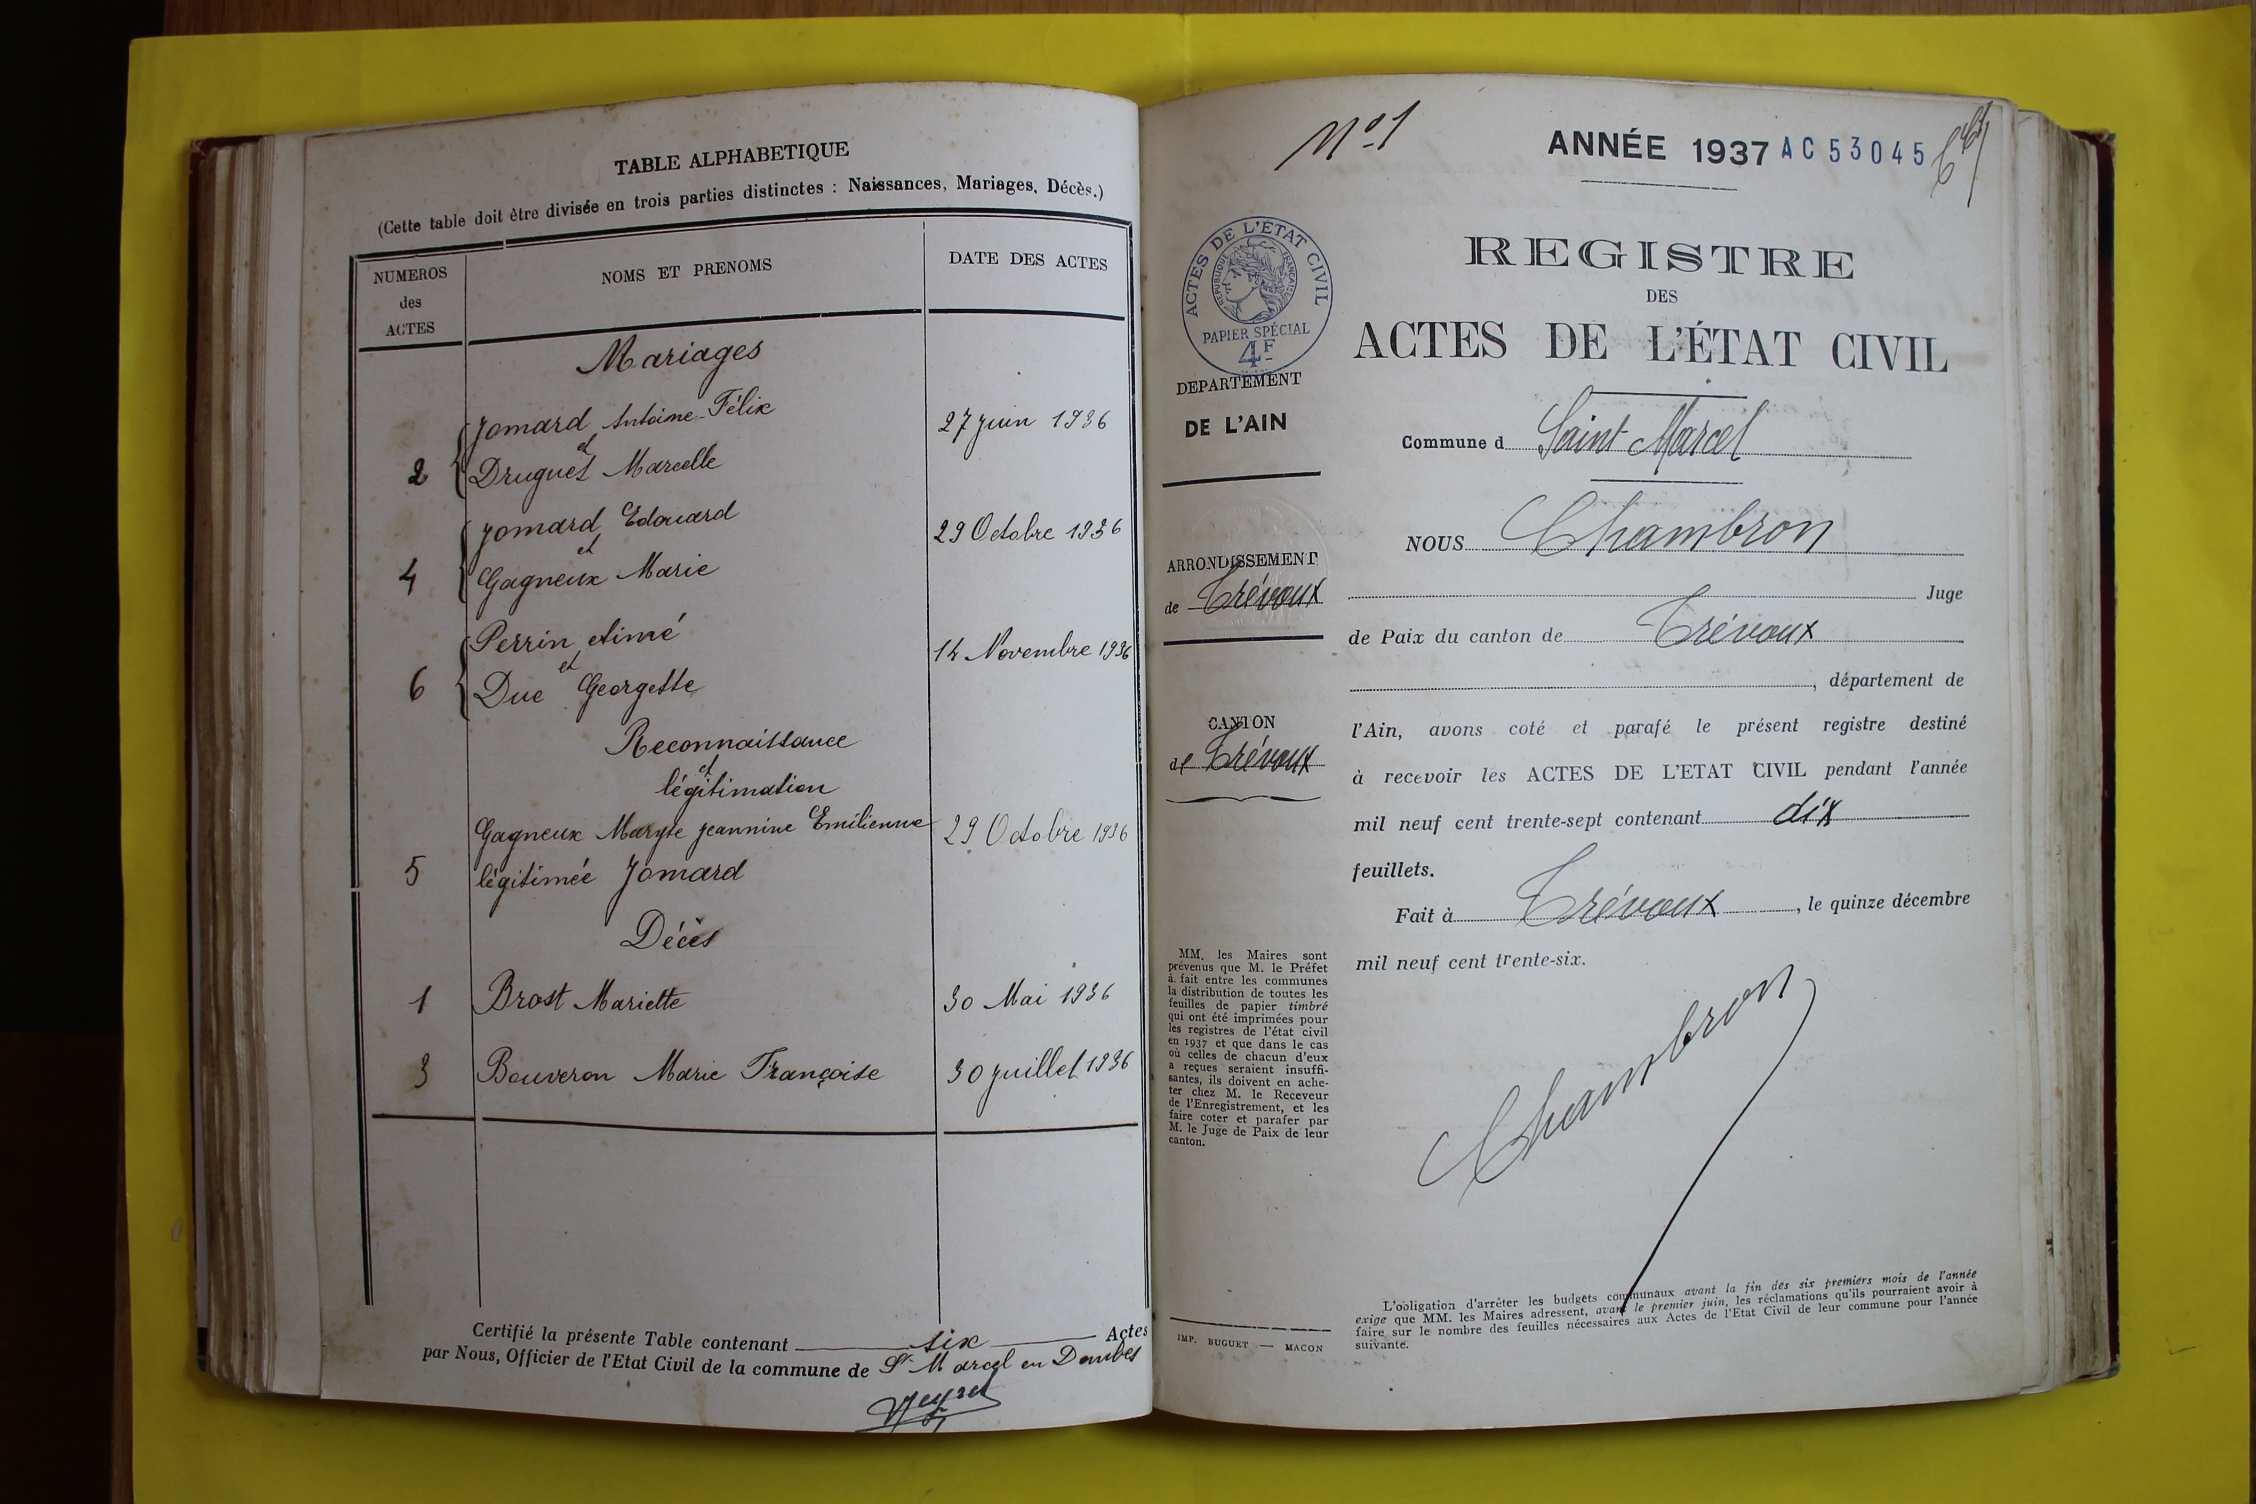 TABLE ALPHABETIQUE
(Cette table doit être divisée en trois parties distinctes : Naissances, Mariages, Décès.)
NUMEROS des ACTES
NOMS ET PRENOMS
DATE DES ACTES
Mariages
Jomard Antoine-Félix
et
27 juin 1936
2
Druguet Marcelle
Jomard Edouard
et
29 Octobre 1936
4
Gagneux Marie
Perrin Aimé
et
14 Novembre 1936
6
Duc Georgette
Reconnaissance
et
légitimation
Gagneux Maryse Jeannine Emilienne
29 Octobre 1936
5
légitimée Jomard
Décès
1 Brost Mariette 30 Mai 1936
3 Bouveron Marie Françoise 30 juillet 1936
Certifié la présente Table contenant six Actes
par Nous, Officier de l'Etat Civil de la commune de St Marcel en Dombes
N°1
ANNÉE 1937 AC 53045
ACTES DE L'ÉTAT CIVIL
RÉPUBLIQUE FRANÇAISE
PAPIER SPÉCIAL
4F
DEPARTEMENT
DE L'AIN
ARRONDISSEMENT
de Trévoux
CANTON
de Trévoux
MM. les Maires sont
prévenus que M. le Préfet
à fait entre les communes
la distribution de toutes les
feuilles de papier timbré
qui ont été imprimées pour
les registres de l'état civil
en 1937 et que dans le cas
où celles de chacun d'eux
a reçues seraient insuffi-
santes, ils doivent en ache-
ter chez M. le Receveur
de l'Enregistrement, et les
faire coter et parafer par
M. le Juge de Paix de leur
canton.
IMP. BUGUET — MACON
REGISTRE
DES
ACTES DE L'ÉTAT CIVIL
Commune d Saint Marcel
NOUS Chambron
Juge
de Paix du canton de Trévoux
, département de
l'Ain, avons coté et parafé le présent registre destiné
à recevoir les ACTES DE L'ETAT CIVIL pendant l'année
mil neuf cent trente-sept contenant dix
feuillets.
Fait à Trévoux, le quinze décembre
mil neuf cent trente-six.
Chambron
L'obligation d'arrêter les budgets communaux avant la fin des six premiers mois de l'année
exige que MM. les Maires adressent, avant le premier juin, les réclamations qu'ils pourraient avoir à
faire sur le nombre des feuilles nécessaires aux Actes de l'Etat Civil de leur commune pour l'année
suivante.